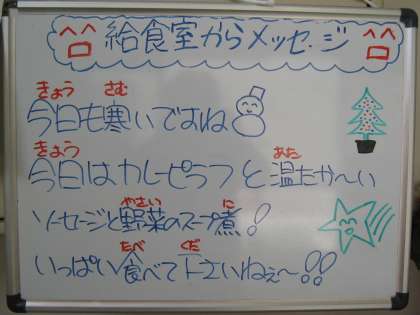 給食室からメッセージ
きょう さむ
今日も寒いですね
きょう あた
今日はカレーピラフと温たか〜い
やさい に
ソーセージと野菜のスープ煮!
たべ くだ
いっぱい食べて下さいねぇ〜!!